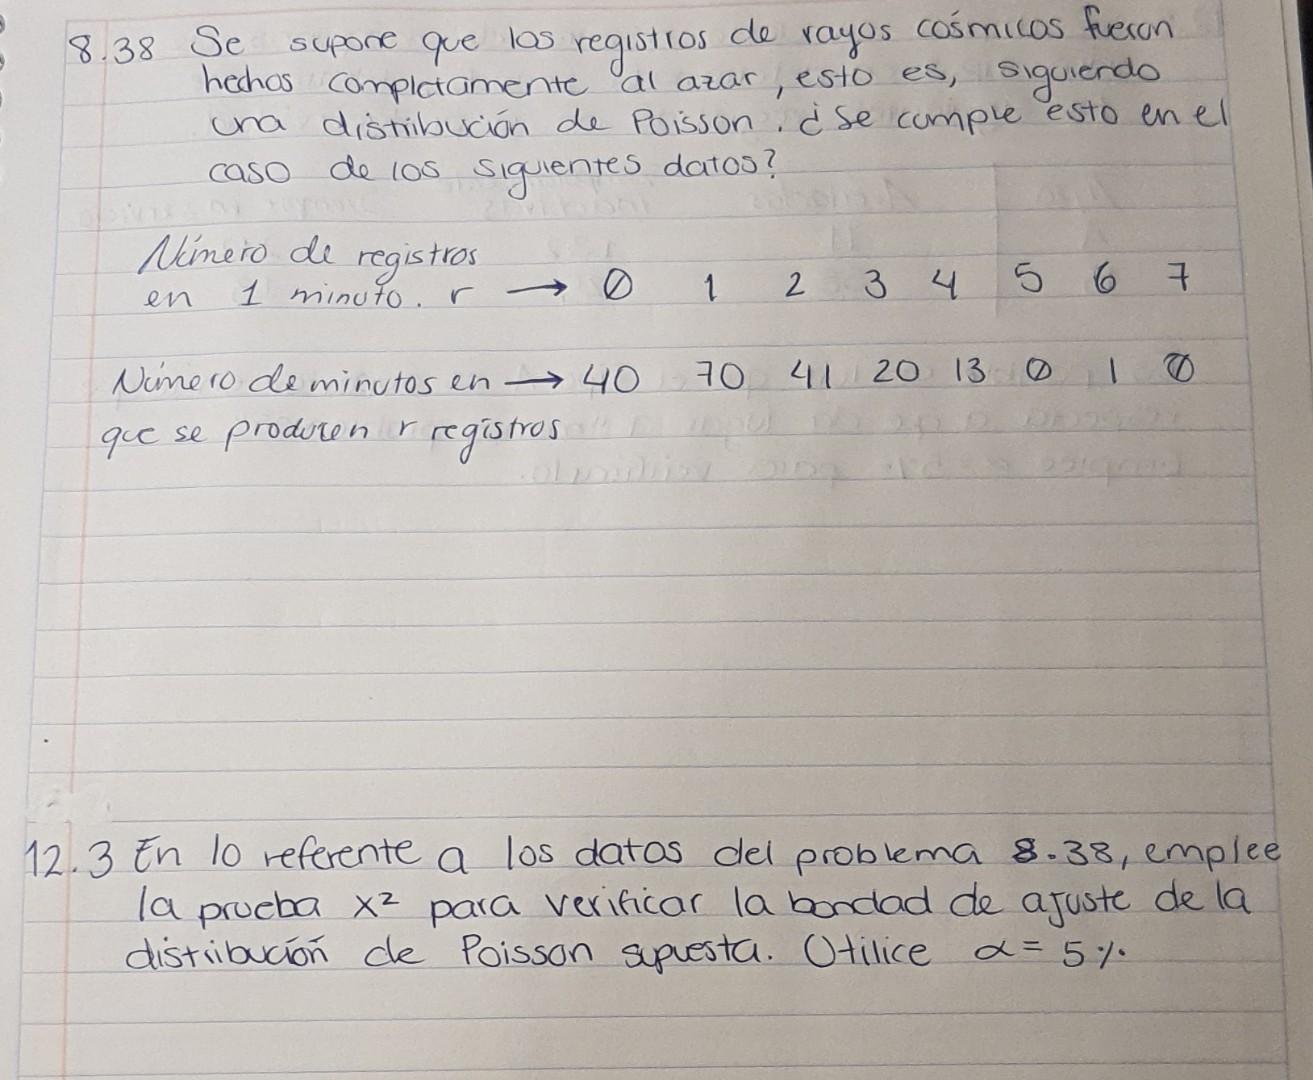 8.38 Se supone que los registros de rayos cósmicos fueron
hechos completamente al azar, esto es, siguiendo
una distribución de Poisson. ¿Se cumple esto en el
caso de los siguientes datos?
Número de registros
en 1 minuto. r → 0 1 2 3 4 5 6 7
Número de minutos en → 40 70 41 20 13 0 1 0
que se producen r registros
12.3 En lo referente a los datos del problema 8.38, emplee
la prueba x² para verificar la bondad de ajuste de la
distribución de Poisson supuesta. Utilice α = 5%.